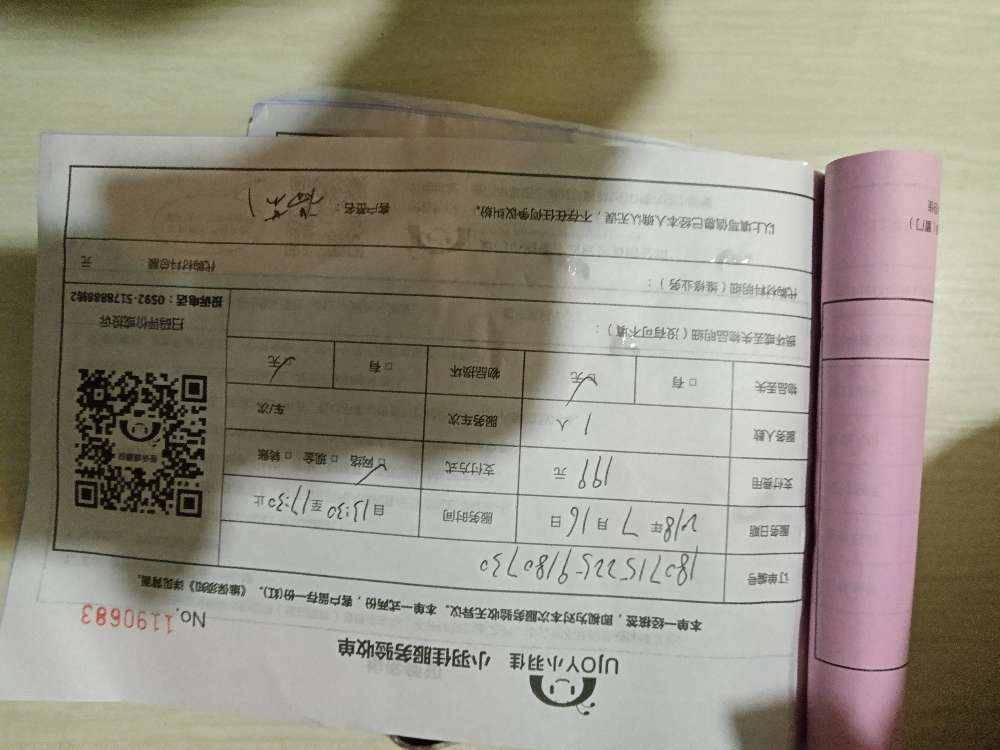 UJOY小羽佳 小羽佳服务验收单
No.1190683
本单一经接签，即视为对本次服务验收无异议。本单一式两份，客户留存一份(红)，《维保须知》详见背面。
订单编号 1807152259180730
服务日期 2018年7月16日 服务时间 自13:30至17:30止
支付费用 199元 支付方式 ☑网络 □现金 □转账
服务人数 1人 服务车次 车/次
物品丢失 □有 ☑无 物品损坏 □有 ☑无
损坏或丢失物品明细（没有可不填）：
代购材料明细（维修业务）：
代购材料总额： 元
以上填写信息已经本人确认无误，不存在任何争议纠纷。 客户签名：
扫码评价或投诉
投诉电话：0592-5178888转2
窗门）